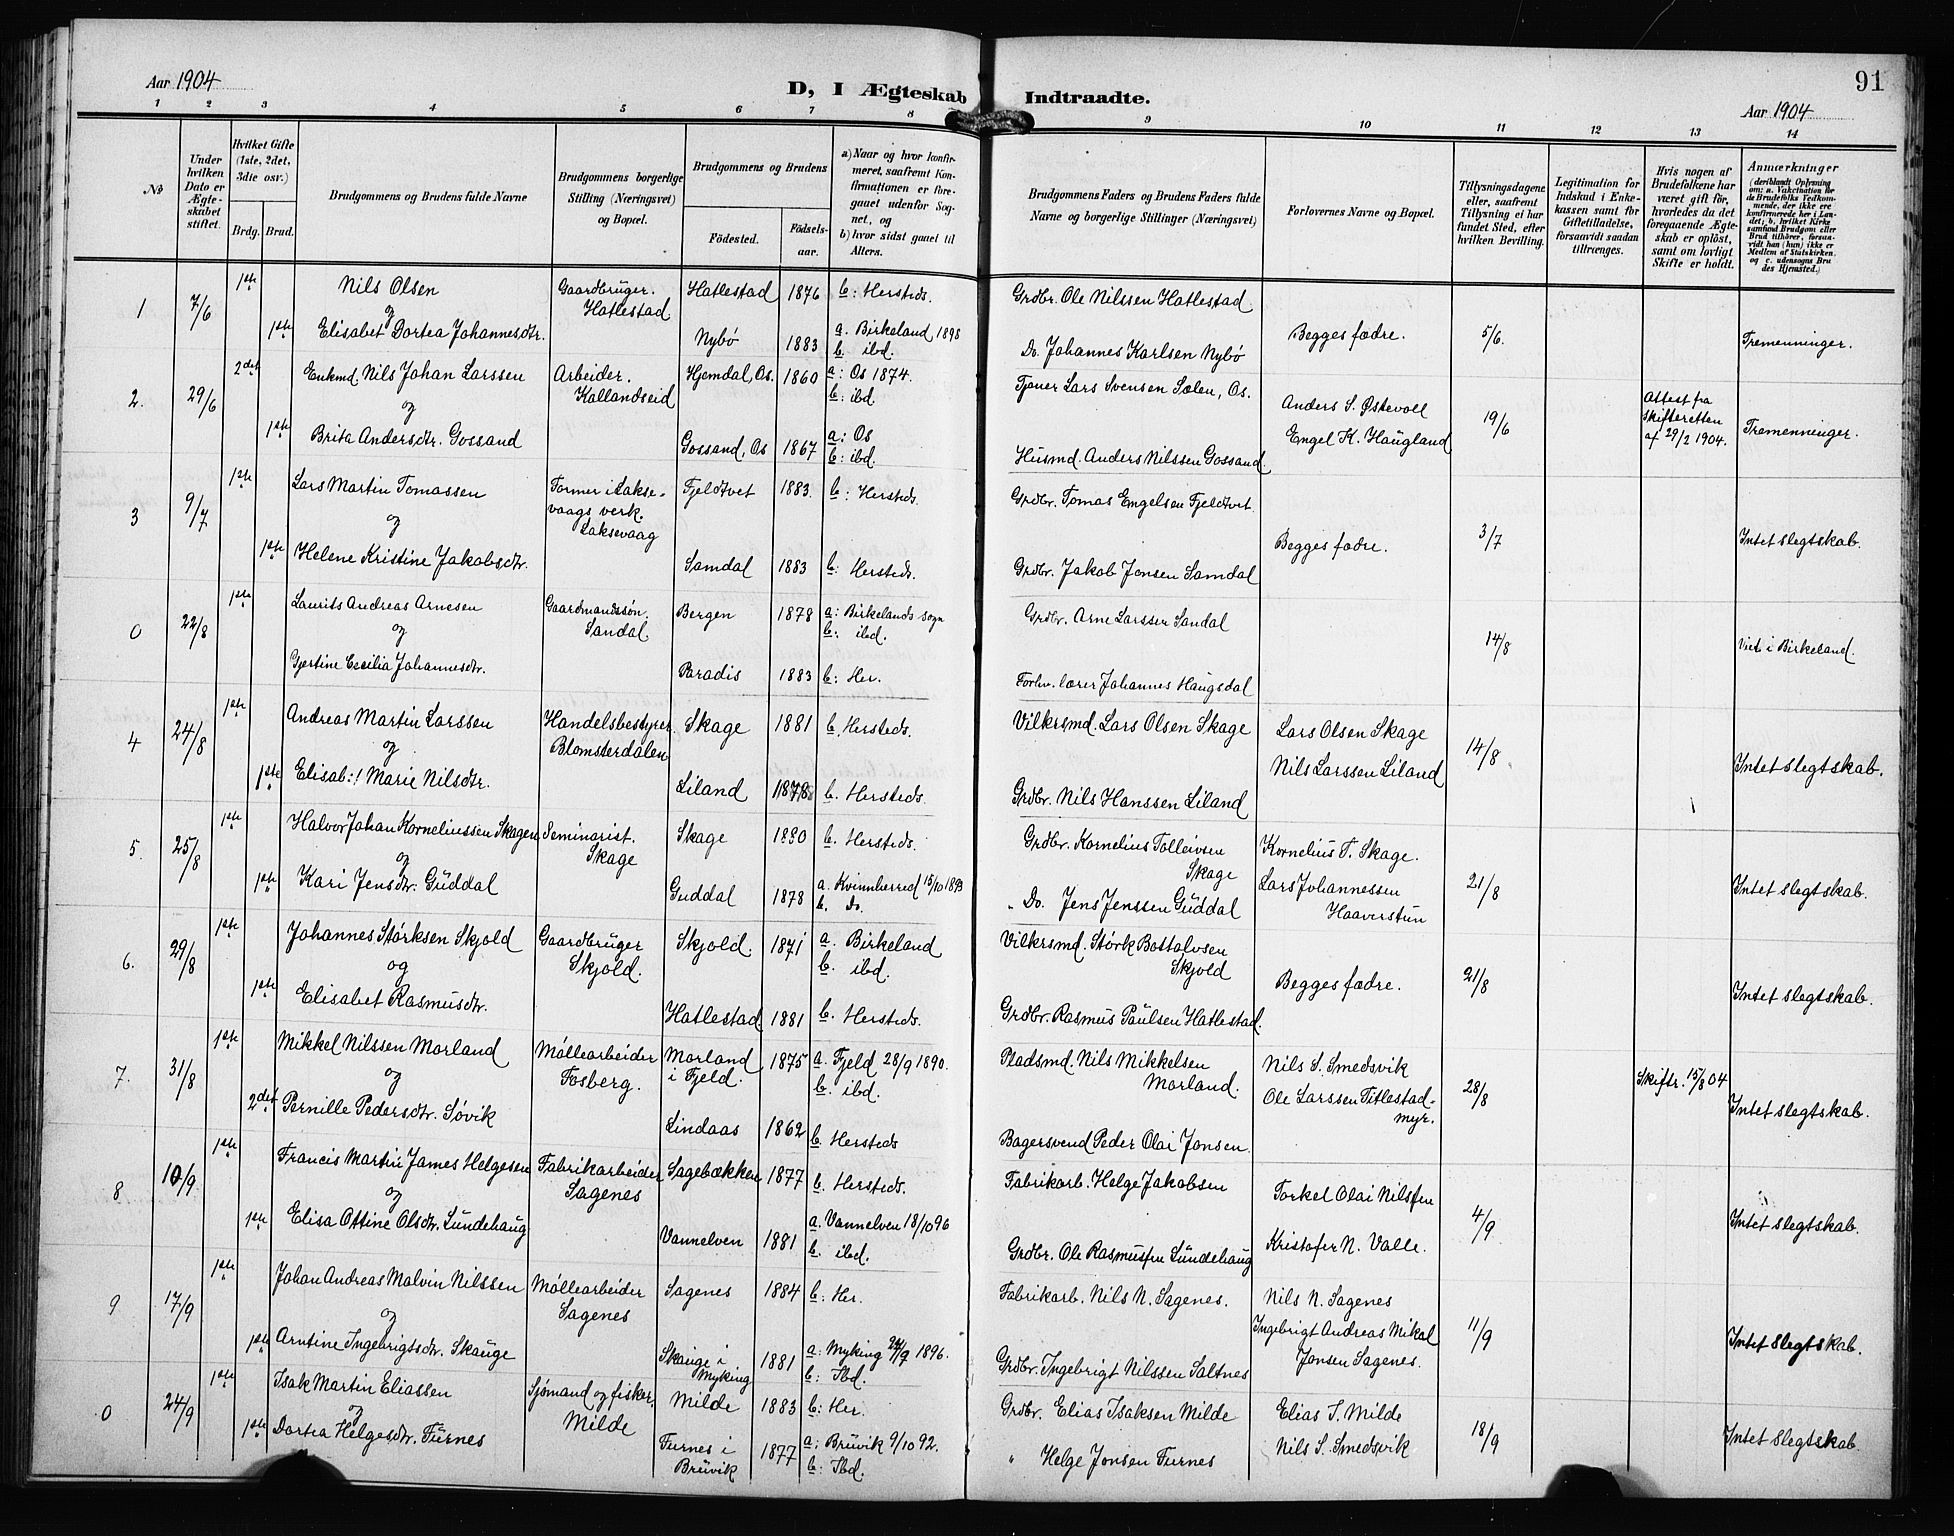 91
Aar 1904
D, I Ægteskab Indtraadte.
Aar 1904
1 2 3 4 5 6 7 8 9 10 11 12 13 14
No
Under hvilken Dato er Ægteskabet stiftet.
Hvilket Gifte (1ste, 2det, 3die osv.)
Brdg. Brud.
Brudgommens og Brudens fulde Navne
Brudgommens borgerlige Stilling (Næringsvei) og Bopæl.
Brudgommens og Brudens
Fødested. Fødsels-aar.
a) Naar og hvor konfirmeret, saafremt Konfirmationen er foregaaet udenfor Sognet, og
b) hvor sidst gaaet til Alters.
Brudgommens Faders og Brudens Faders fulde Navne og borgerlige Stillinger (Næringsvei)
Forlovernes Navne og Bopæl.
Tillysningsdagene eller, saafremt Tillysning ei har fundet Sted, efter hvilken Bevilling.
Legitimation for Indskud i Enkekassen samt for Giftetilladelse, forsaavidt saadan tiltrænges.
Hvis nogen af Brudefolkene har været gift før, hvorledes da det foregaaende Ægteskab er opløst, samt om lovligt Skifte er holdt.
Anmærkninger
(deriblandt Oplysning om: a. Vakcination for de Brudefolks Vedkommende, der ikke ere konfirmerede her i Landet; b. hvilket Kirkesamfund Brudgom eller Brud tilhører, forsaavidt han (hun) ikke er Medlem af Statskirken, og c. udensogns Brudes Hjemsted.)
1 7/6 1ste Nils Olsen Gaardbruger. Hatlestad Hatlestad 1876 b: Hersteds. Grdbr. Ole Nilssen Hatlestad
og
1ste Elisabet Dortea Johannesdtr. Nybø 1883 a. Birkeland 1898 b. ibd. Do. Johannes Karlsen Nybø Begges fædre. 5/6. Tremenninger.
2. 29/6 2det Enkmd. Nils Johan Larssen Arbeider. Kallandseid Hjemdal, Os. 1860 a: Os 1874. b: ibd. Tjener Lars Svensen Sælen, Os.
og
1ste Brita Andersdtr. Gossand Gossand, Os 1867 a: Os b: ibd. Husmd. Anders Nilssen Gossand. Anders S. Østevoll Engel K. Haugland 19/6 Attest fra skifteretten af 29/2 1904. Tremenninger.
3 9/7 1ste Lars Martin Tomassen Former i Laksevaags verk. Laksevaag Fjeldtvet 1883. b: Hersteds. Grdbr. Tomas Engelsen Fjeldtvet
og
1ste Helene Kristine Jakobsdtr. Samdal 1883 b: Hersteds. Grdbr. Jakob Jonsen Samdal Begges fædre. 3/7 Intet slegtskab.
0 22/8 1ste Laurits Andreas Arnesen Gaardmandssøn. Sandal Bergen 1878 a: Birkelands sogn b: ibd. Grdbr. Arne Larssen Sandal
og
Gjertine Cecilia Johannesdtr. Paradis 1883 b: Her. Forhv. lærer Johannes Haugsdal 14/8 Viet i Birkeland.
4 24/8 1ste Andreas Martin Larssen Handelsbestyrer. Blomsterdalen Skage 1881 b. Hersteds. Vilkrsmd. Lars Olsen Skage
og
1ste Elisab:! Marie Nilsdtr. Liland 1878 b. Hersteds. Grdbr. Nils Hanssen Liland Lars Olsen Skage Nils Larssen Liland 14/8 Intet slegtskab.
5. 25/8 1ste Halvor Johan Korneliussen Skagen Seminarist. Skage Skage 1880 b. Hersteds. Grdbr. Kornelius Tolleivsen Skage
og
1ste Kari Jensdtr. Guddal Guddal 1878 a. Kvinnherred 15/10 1893 b. Do. " Do. Jens Jenssen Guddal Kornelius T. Skage. Lars Johannessen Haaverstun 21/8 Intet slegtskab.
6. 29/8 1ste Johannes Størksen Skjold Gaardbruger Skjold. Skjold. 1871 a. Birkeland b. ibd. Vilkrsmd. Størk Bottolvsen Skjold
og
1ste Elisabet Rasmusdtr. Hatlestad 1881 b. Hersteds. Grdbr. Rasmus Paulsen Hatlestad. Begges fædre. 21/8 Intet slegtskab.
7. 31/8 1ste Mikkel Nilssen Morland Møllearbeider Fosberg. Morland i Fjeld. 1875 a. Fjeld 28/9 1890. b. ibd. Pladsmd. Nils Mikkelsen Morland.
og
2det Pernille Pedersdtr. Søvik Lindaas 1862 b. Hersteds Bagersvend Peder Olai Jonsen. Nils S. Smedsvik Ole Larssen Titlestad-myr. 28/8 Skiftr. 15/8 04 Intet slegtskab.
8 10/9 1ste Francis Martin James Helgesen Fabrikarbeider Sagenes Sagebækken 1877 b. Hersteds. Fabrikarb. Helge Jakobsen
og
1ste Elisa Ottine Olsdtr. Lundehaug Vannelven 1881 a. Vannelven 18/10 96 b. ibd. Grdbr. Ole Rasmussen Lundehaug Torkel Olai Nilssen Kristofer N. Valle. 4/9 Intet slegtskab.
9 17/9 1ste Johan Andreas Malvin Nilssen Møllearbeider Sagenes Sagenes 1884 b: Her. Fabrikarb. Nils N. Sagenes.
og
1ste Arntine Ingebrigtsdtr. Skauge Skauge i Myking 1881 a: Myking 1896. b: Ibd. Grdbr. Ingebrigt Nilssen Saltnes Nils N. Sagenes Ingebrigt Andreas Mikal Jonsen Sagenes. 11/9 Intet slegtskab.
0 24/9 1ste Isak Martin Eliassen Sjømand og fisker. Milde Milde 1883 b: Her. Grdbr. Elias Isaksen Milde
og
1ste Dortea Helgesdtr. Furnes Furnes i Bruvik 1877 a: Bruvik 9/10 92. b: Ibd. " Helge Jonsen Furnes Elias I. Milde Nils S. Smedsvik 18/9 Intet slegtskab.